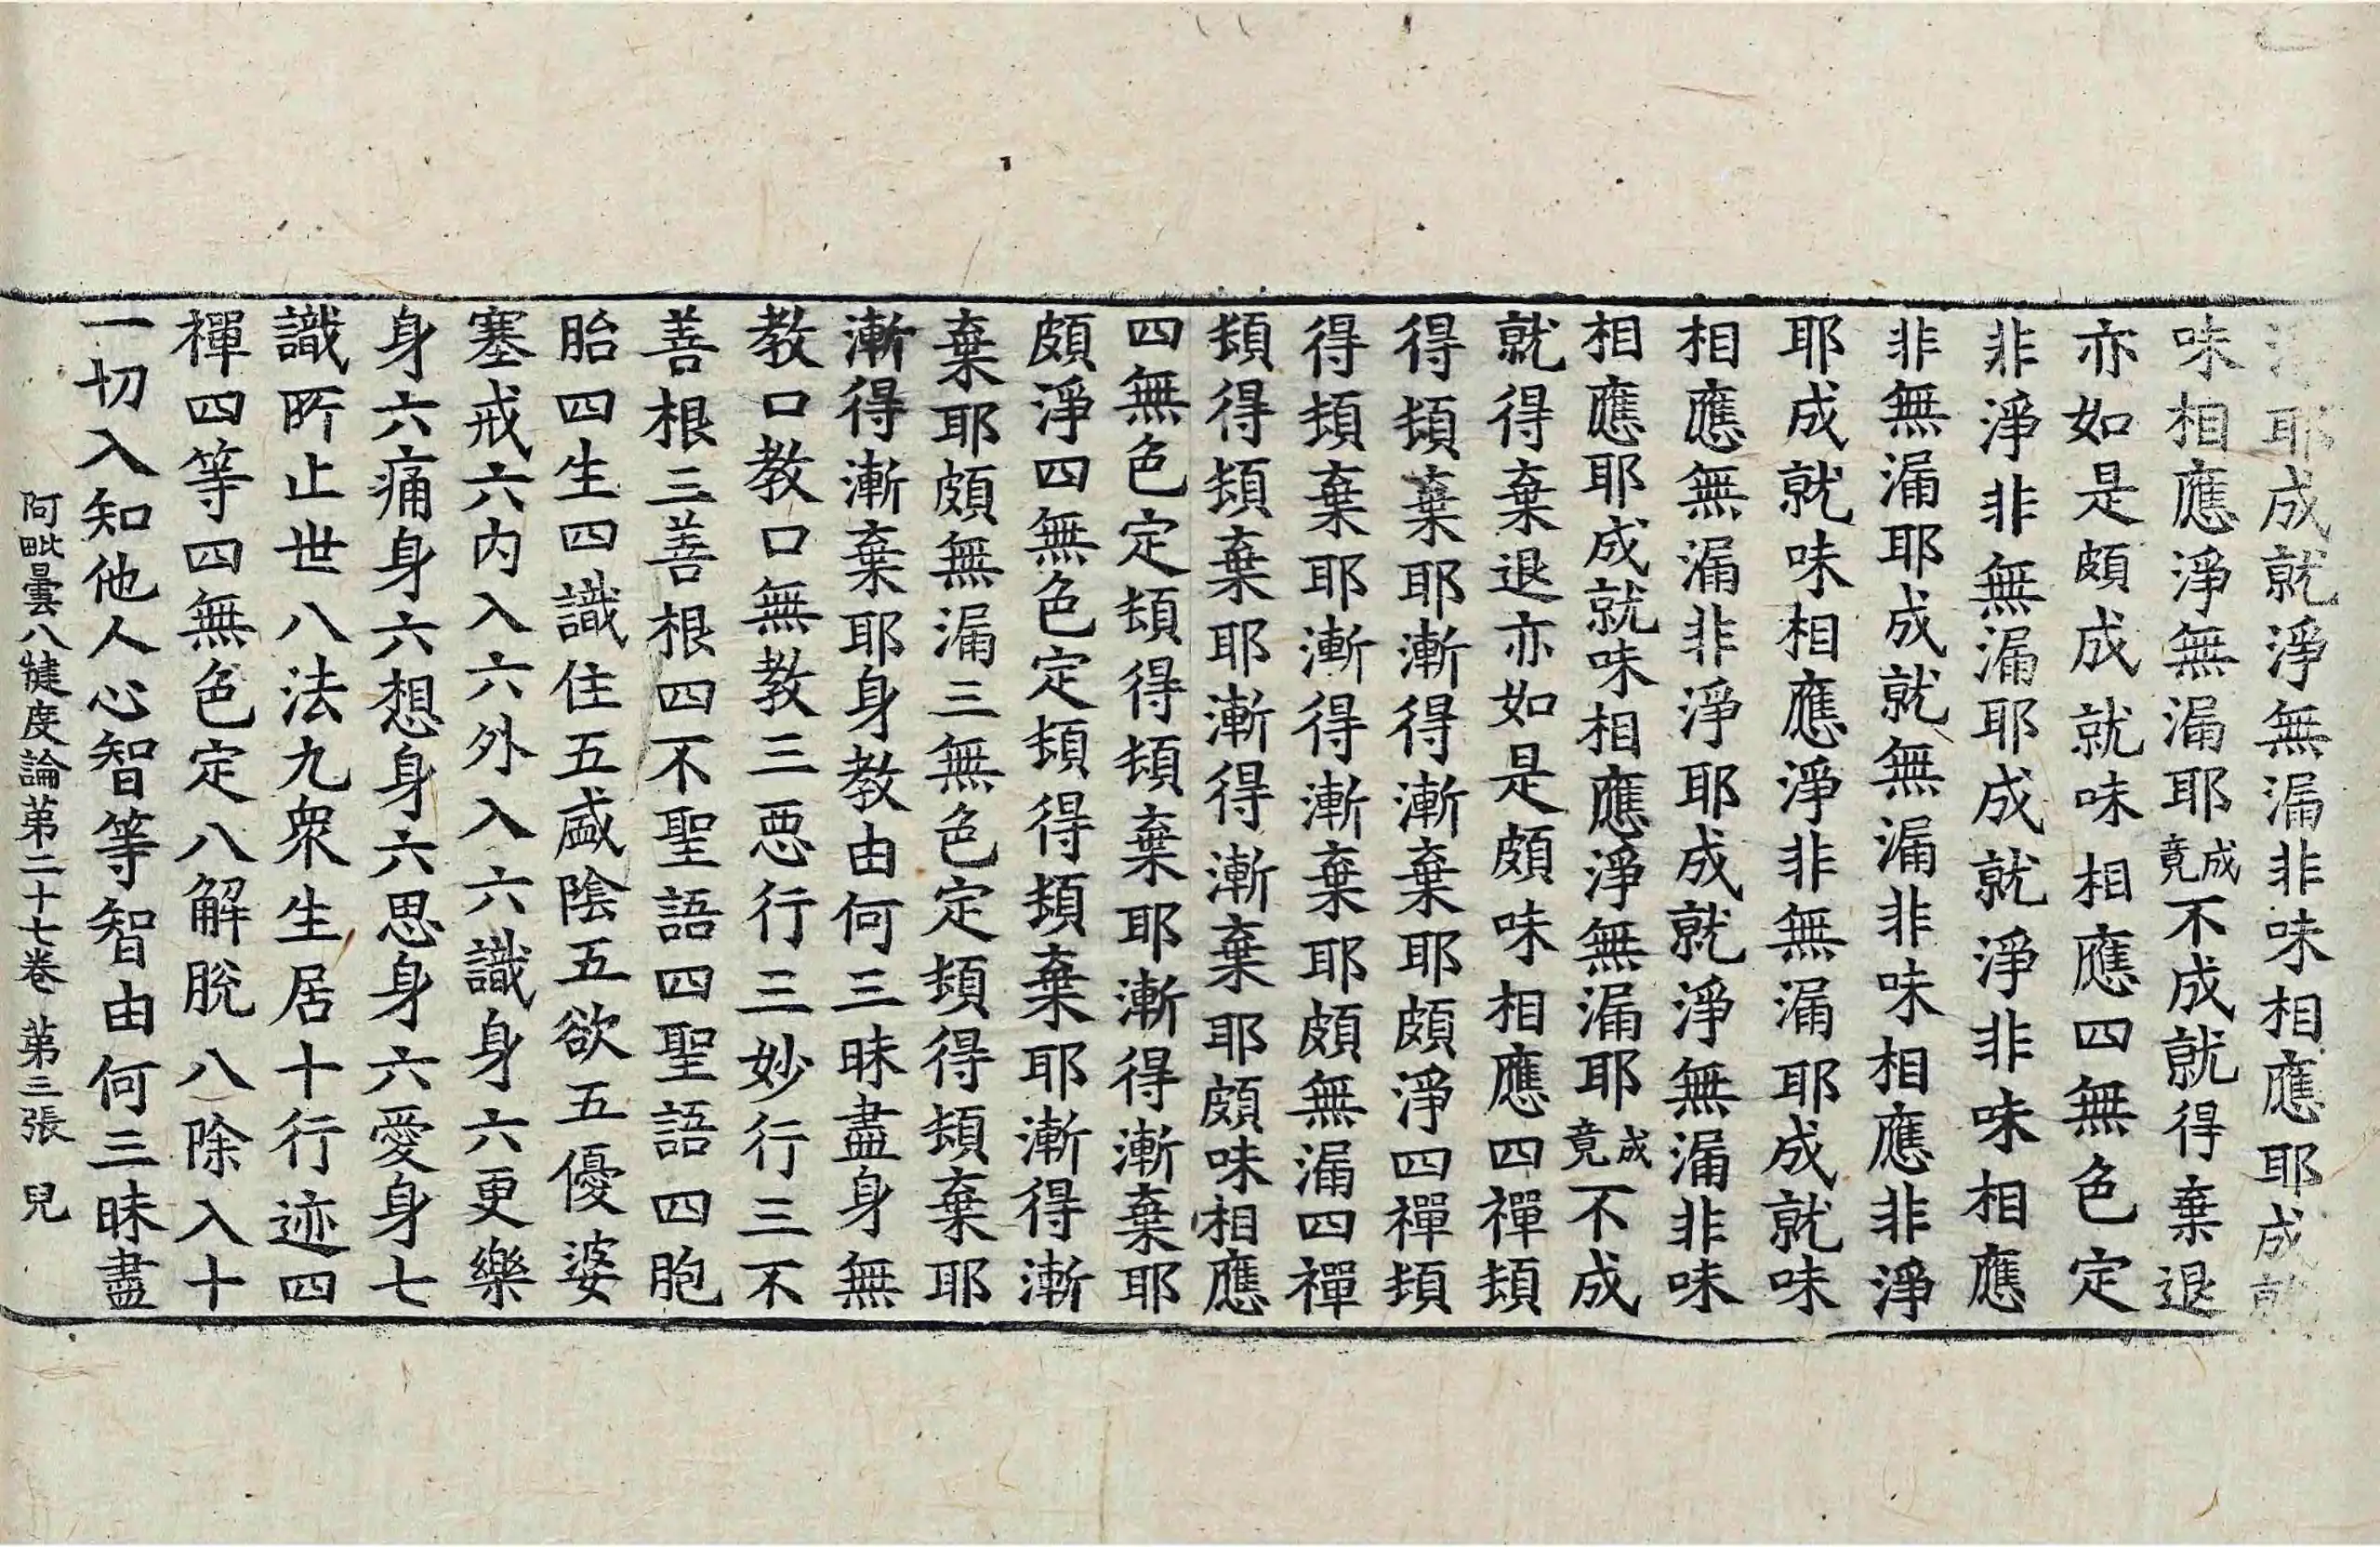 耶成就淨無漏非味相應耶成就
味相應淨無漏耶成竟不成就得棄退
亦如是頗成就味相應四無色定
非淨非無漏耶成就淨非味相應
非無漏耶成就無漏非味相應非淨
耶成就味相應淨非無漏耶成就味
相應無漏非淨耶成就淨無漏非味
相應耶成就味相應淨無漏耶成竟不成
就得棄退亦如是頗味相應四禪頓
得頓棄耶漸得漸棄耶頗淨四禪頓
得頓棄耶漸得漸棄耶頗無漏四禪
頓得頓棄耶漸得漸棄耶頗味相應
四無色定頓得頓棄耶漸得漸棄耶
頗淨四無色定頓得頓棄耶漸得漸
棄耶頗無漏三無色定頓得頓棄耶
漸得漸棄耶身教由何三昧盡身無
教口教口無教三惡行三妙行三不
善根三善根四不聖語四聖語四胞
胎四生四識住五盛陰五欲五優婆
塞戒六內入六外入六識身六更樂
身六痛身六想身六思身六愛身七
識所止世八法九眾生居十行迹四
禪四等四無色定八解脫八除入十
一切入知他人心智等智由何三昧盡
阿毗曇八犍度論第二十七卷 第三張 兒